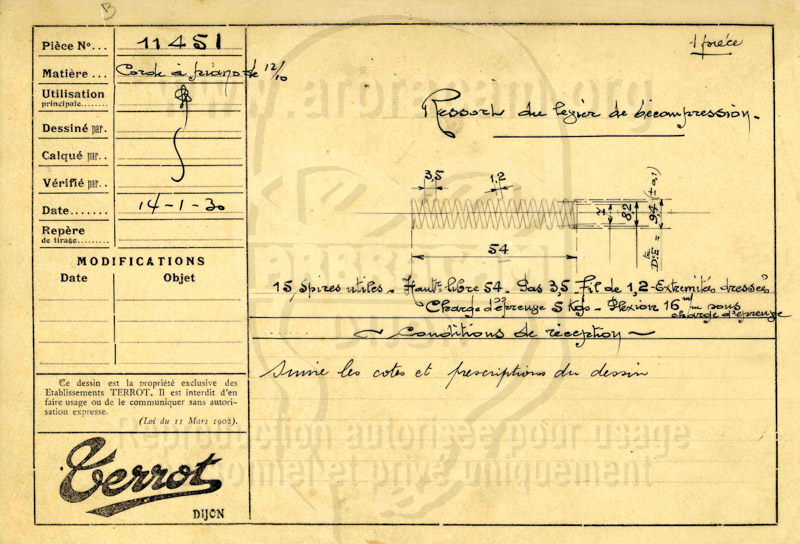 B
Pièce N°... 11451
Matière... Corde à piano de 12/10
Utilisation
principale........
Dessiné par.
Calqué par..
Vérifié par..
Date....... 14-1-30
Repère
de tirage........
MODIFICATIONS
Date Objet
Ce dessin est la propriété exclusive des
Etablissements TERROT. Il est interdit d'en
faire usage ou de le communiquer sans autori-
sation expresse.
(Loi du 11 Mars 1902).
Terrot
DIJON
1 pièce
Ressort du levier de décompression.
3,5 1,2
7 8,2 9,4 (±0,1)
54
15 spires utiles - Haut. libre 54. Pas 3,5 Fil de 1,2 - Extremités dressées
Charge d'épreuve 5 kgs - Flexion 16 m/m sous
charge d'épreuve
Conditions de réception
Suivre les cotes et prescriptions du dessin
www.arbracam.org
Reproduction autorisée pour usage
personnel et privé uniquement